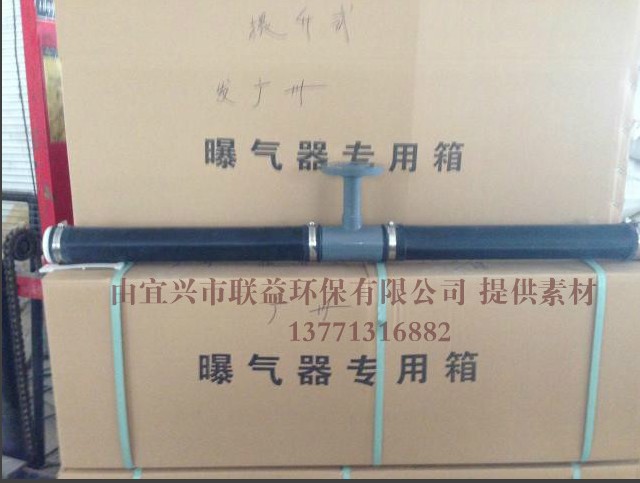 提升式
发广州
曝气器专用箱
由宜兴市联益环保有限公司 提供素材
广州
13771316882
曝气器专用箱